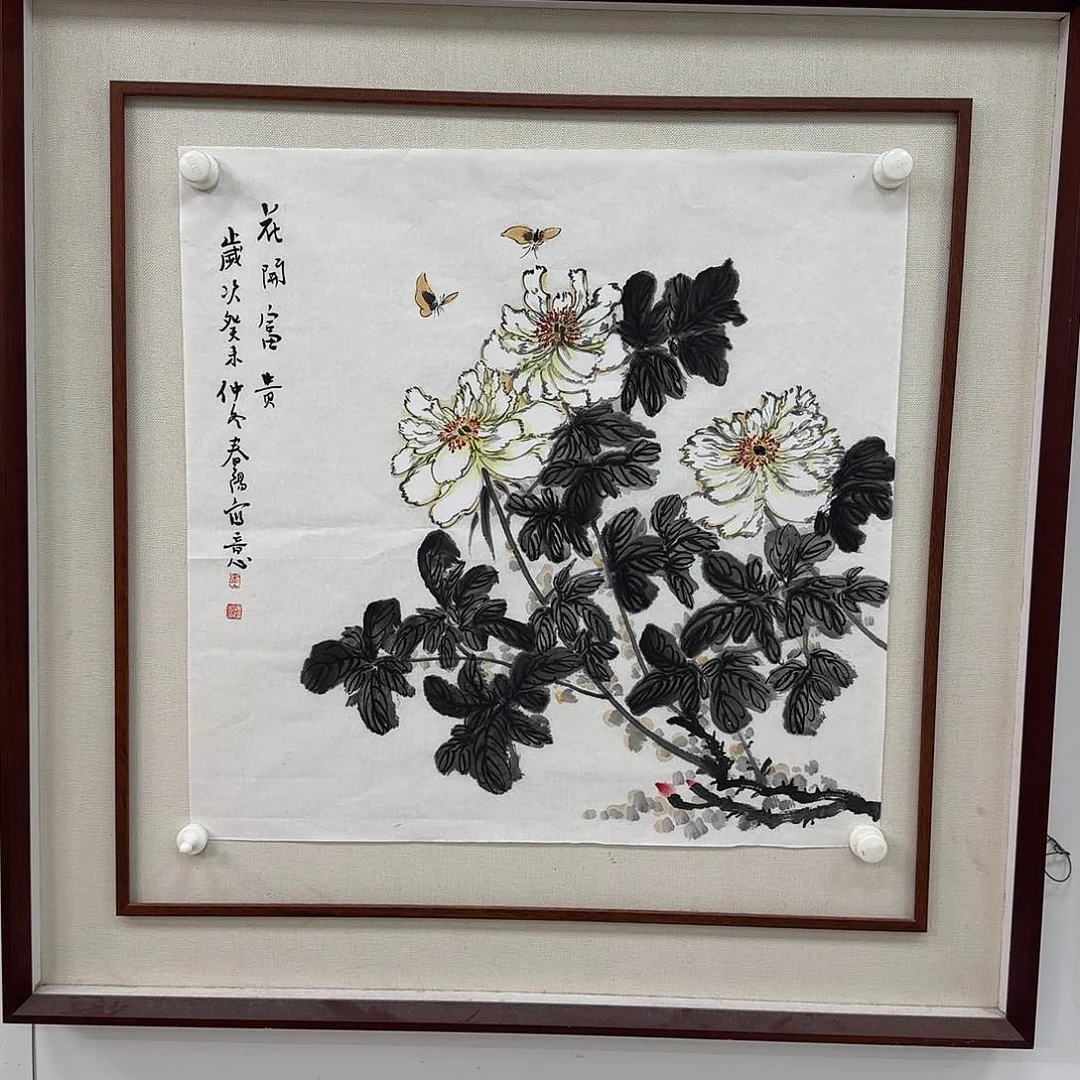 花開富貴
歲次癸未仲冬春陽寫意